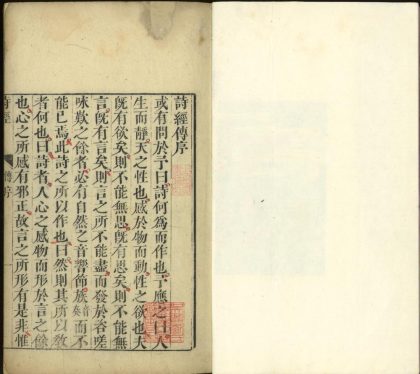 詩經傳序
或有問於予曰詩何為而作也予應之曰人
生而靜天之性也感於物而動性之欲也夫
旣有欲矣則不能無思旣有思矣則不能無
言旣有言矣則言之所不能盡而發於咨嗟
咏歎之餘者必有自然之音響節族音奏而不
能已焉此詩之所以作也曰然則其所以敎
者何也曰詩者人心之感物而形於言之餘
也心之所感有邪正故言之所形有是非惟
詩經
傳序